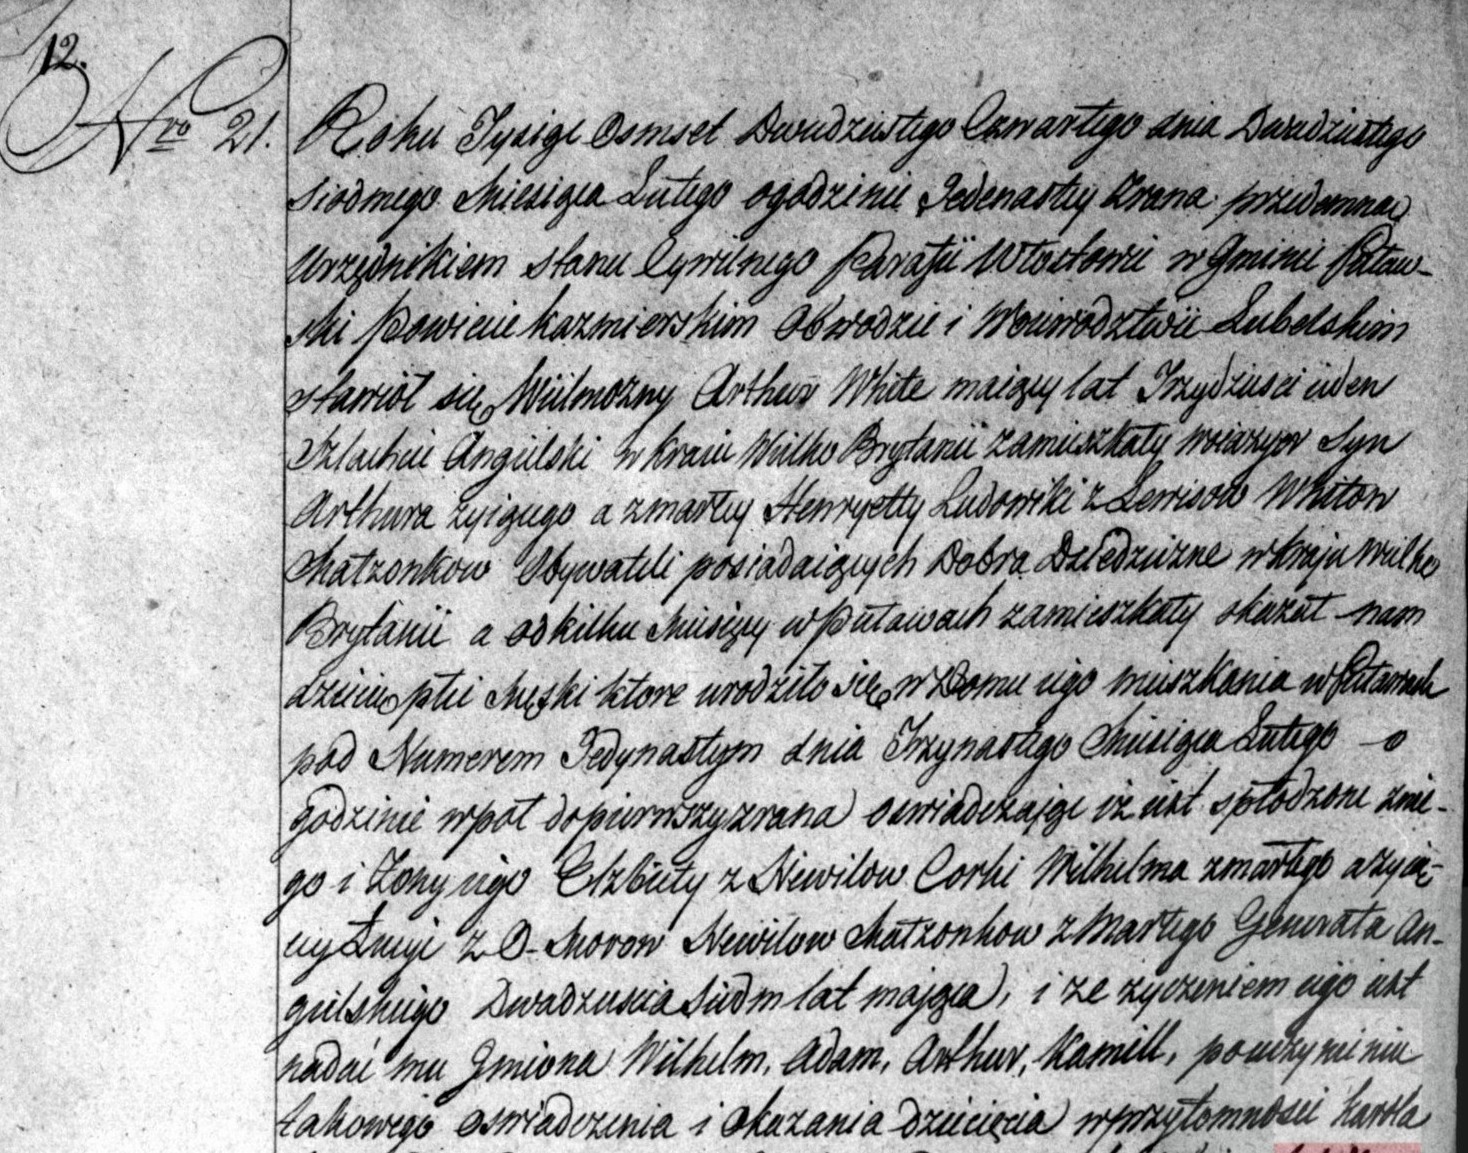 12.
Nro 21.
Roku Tysiąc Osmset Dwudziestego Czwartego dnia Dwudziestego
siodmego Miesiąca Lutego ogodzinie Jedenastey Zrana przedemną
Urzędnikiem stanu Cywilnego Parafii Włostowic w Gminie Puław-
ski Powiecie kazmierskim Obwodzie i Woiewodztwie Lubelskim
stawiół się Wielmożny Arthur White maiący lat Trzydzieści ieden
Szlachcic Angielski w kraiu Wielko Brytanii zamieszkały Syn
Arthura żyiącego a zmarłey Henryetty Ludowiki z Lewisow Whitow
Małżonkow Obywateli posiadaiących Dobra Dziedziczne w kraju Wielko
Brytanii a od kilku Miesięcy w Puławach zamieszkały okazał nam
dziecię płci Męski ktore urodziło się w Domu iego mieszkania w Puławach
pod Numerem Jedynastym dnia Trzynastego Miesiąca Lutego o
godzinie wpoł dopierwszy zrana oswiadczając iż iest spłodzone znie-
go i Żony iego Elżbiety z Newilow Corki Wilhelma zmarłego a żyią-
cy Łucyi z O-Morow Newilow Małżonkow zmarłego Generała An-
gielskiego Dwadzieścia siedm lat mająca, i że życzeniem iego iest
nadać mu Jmiona Wilhelm, Adam, Arthur, Kamill, po uczynieniu
takowego oswiadczenia i okazania dziecięcia w przytomności Karola